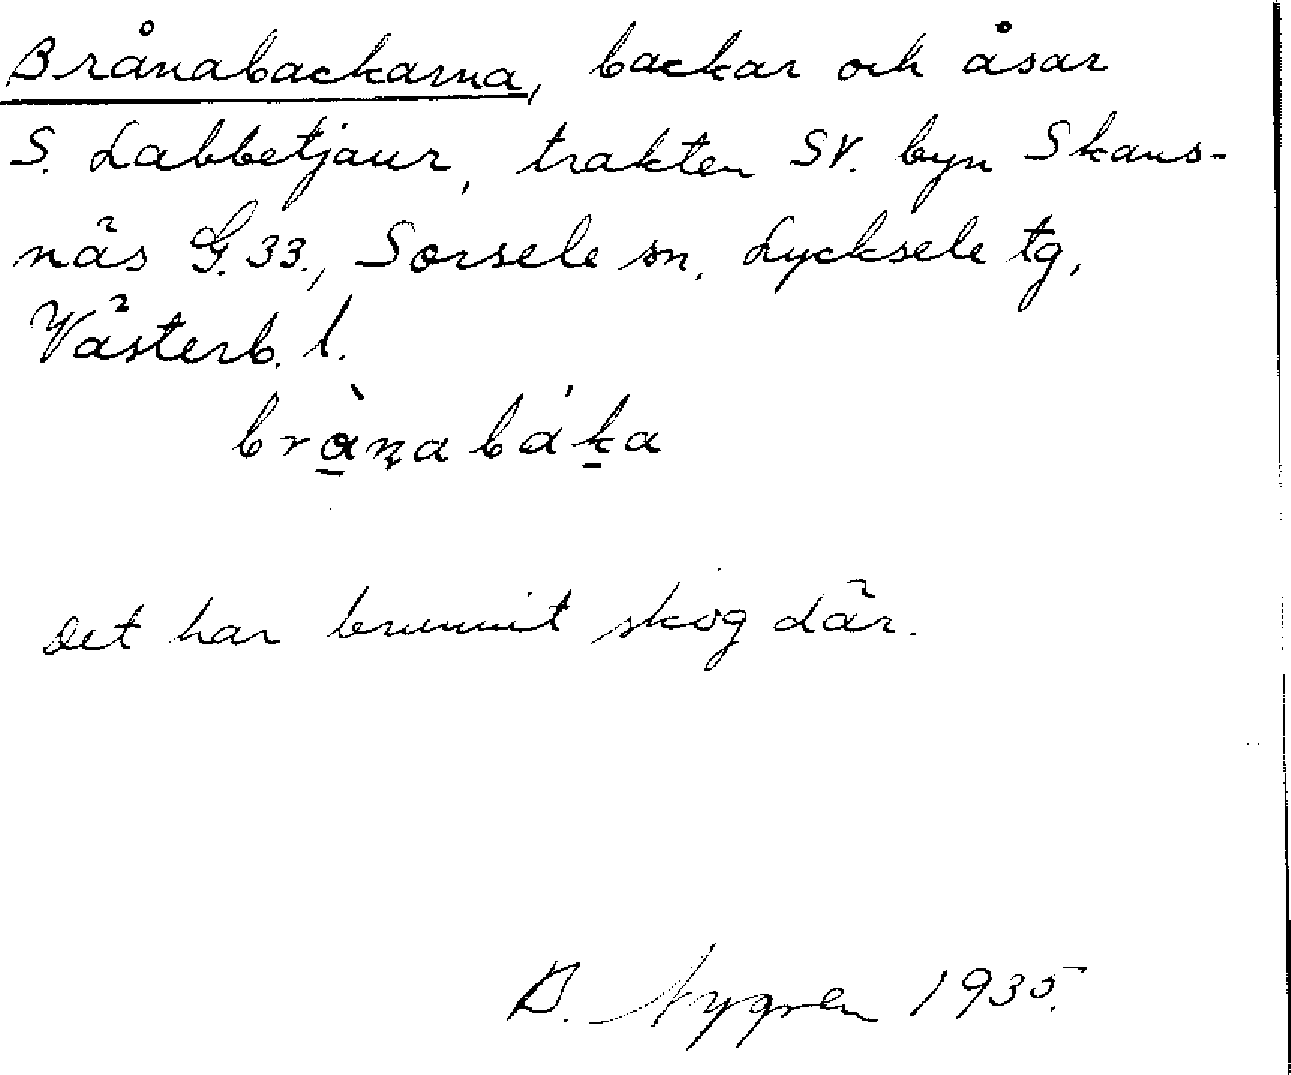 Brånabackarna, backar och åsar
S. Labbetjaur, trakten SV. byn Skans-
näs G.33., Sorsele sn. Lycksele tg,
Västerb. l.
brànabáka
Det har brunnit skog där.
B. Nygren 1935.